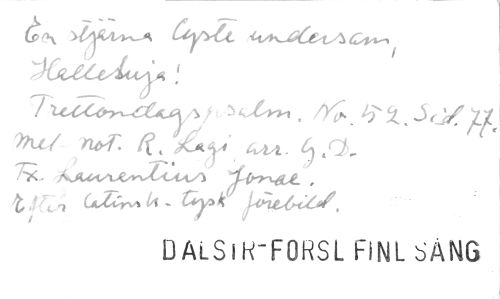 En stjärna lyste undersam,
Halleluja!
Trettondagspsalm. No. 52. Sid. 77.
Mel- not. R. Lagi, arr. G. D.
Tx. Laurentius Jonae.
Efter latinsk-tysk förebild.
DALSTR-FORSL FINL SÅNG